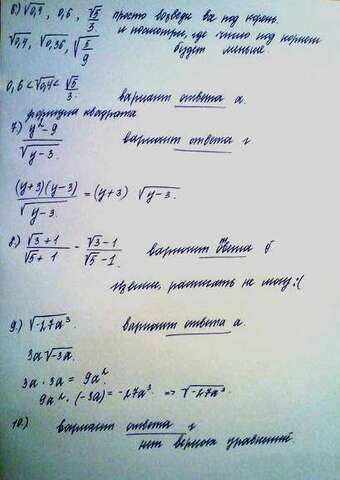 6) √0,4, 0,6, √5/3 просто возведи всё под корень.
и посмотри, где число под корнем
√0,4, √0,36, √5/9 будет меньше.
0,6 < √0,4 < √5/3. вариант ответа а.
формула квадрата
7) y²-9/√y-3. вариант ответа г
(y+3)(y-3)/√y-3. = (y+3) √y-3.
8) √3+1/√5+1 - √3-1/√5-1. вариант б
Извини, расписать не могу:(
9) √-27a³. вариант ответа а.
3a√-3a.
3a·3a = 9a².
9a²·(-3a) = -27a³ => √-27a³.
10.) вариант ответа г.
нет верного уравнений.